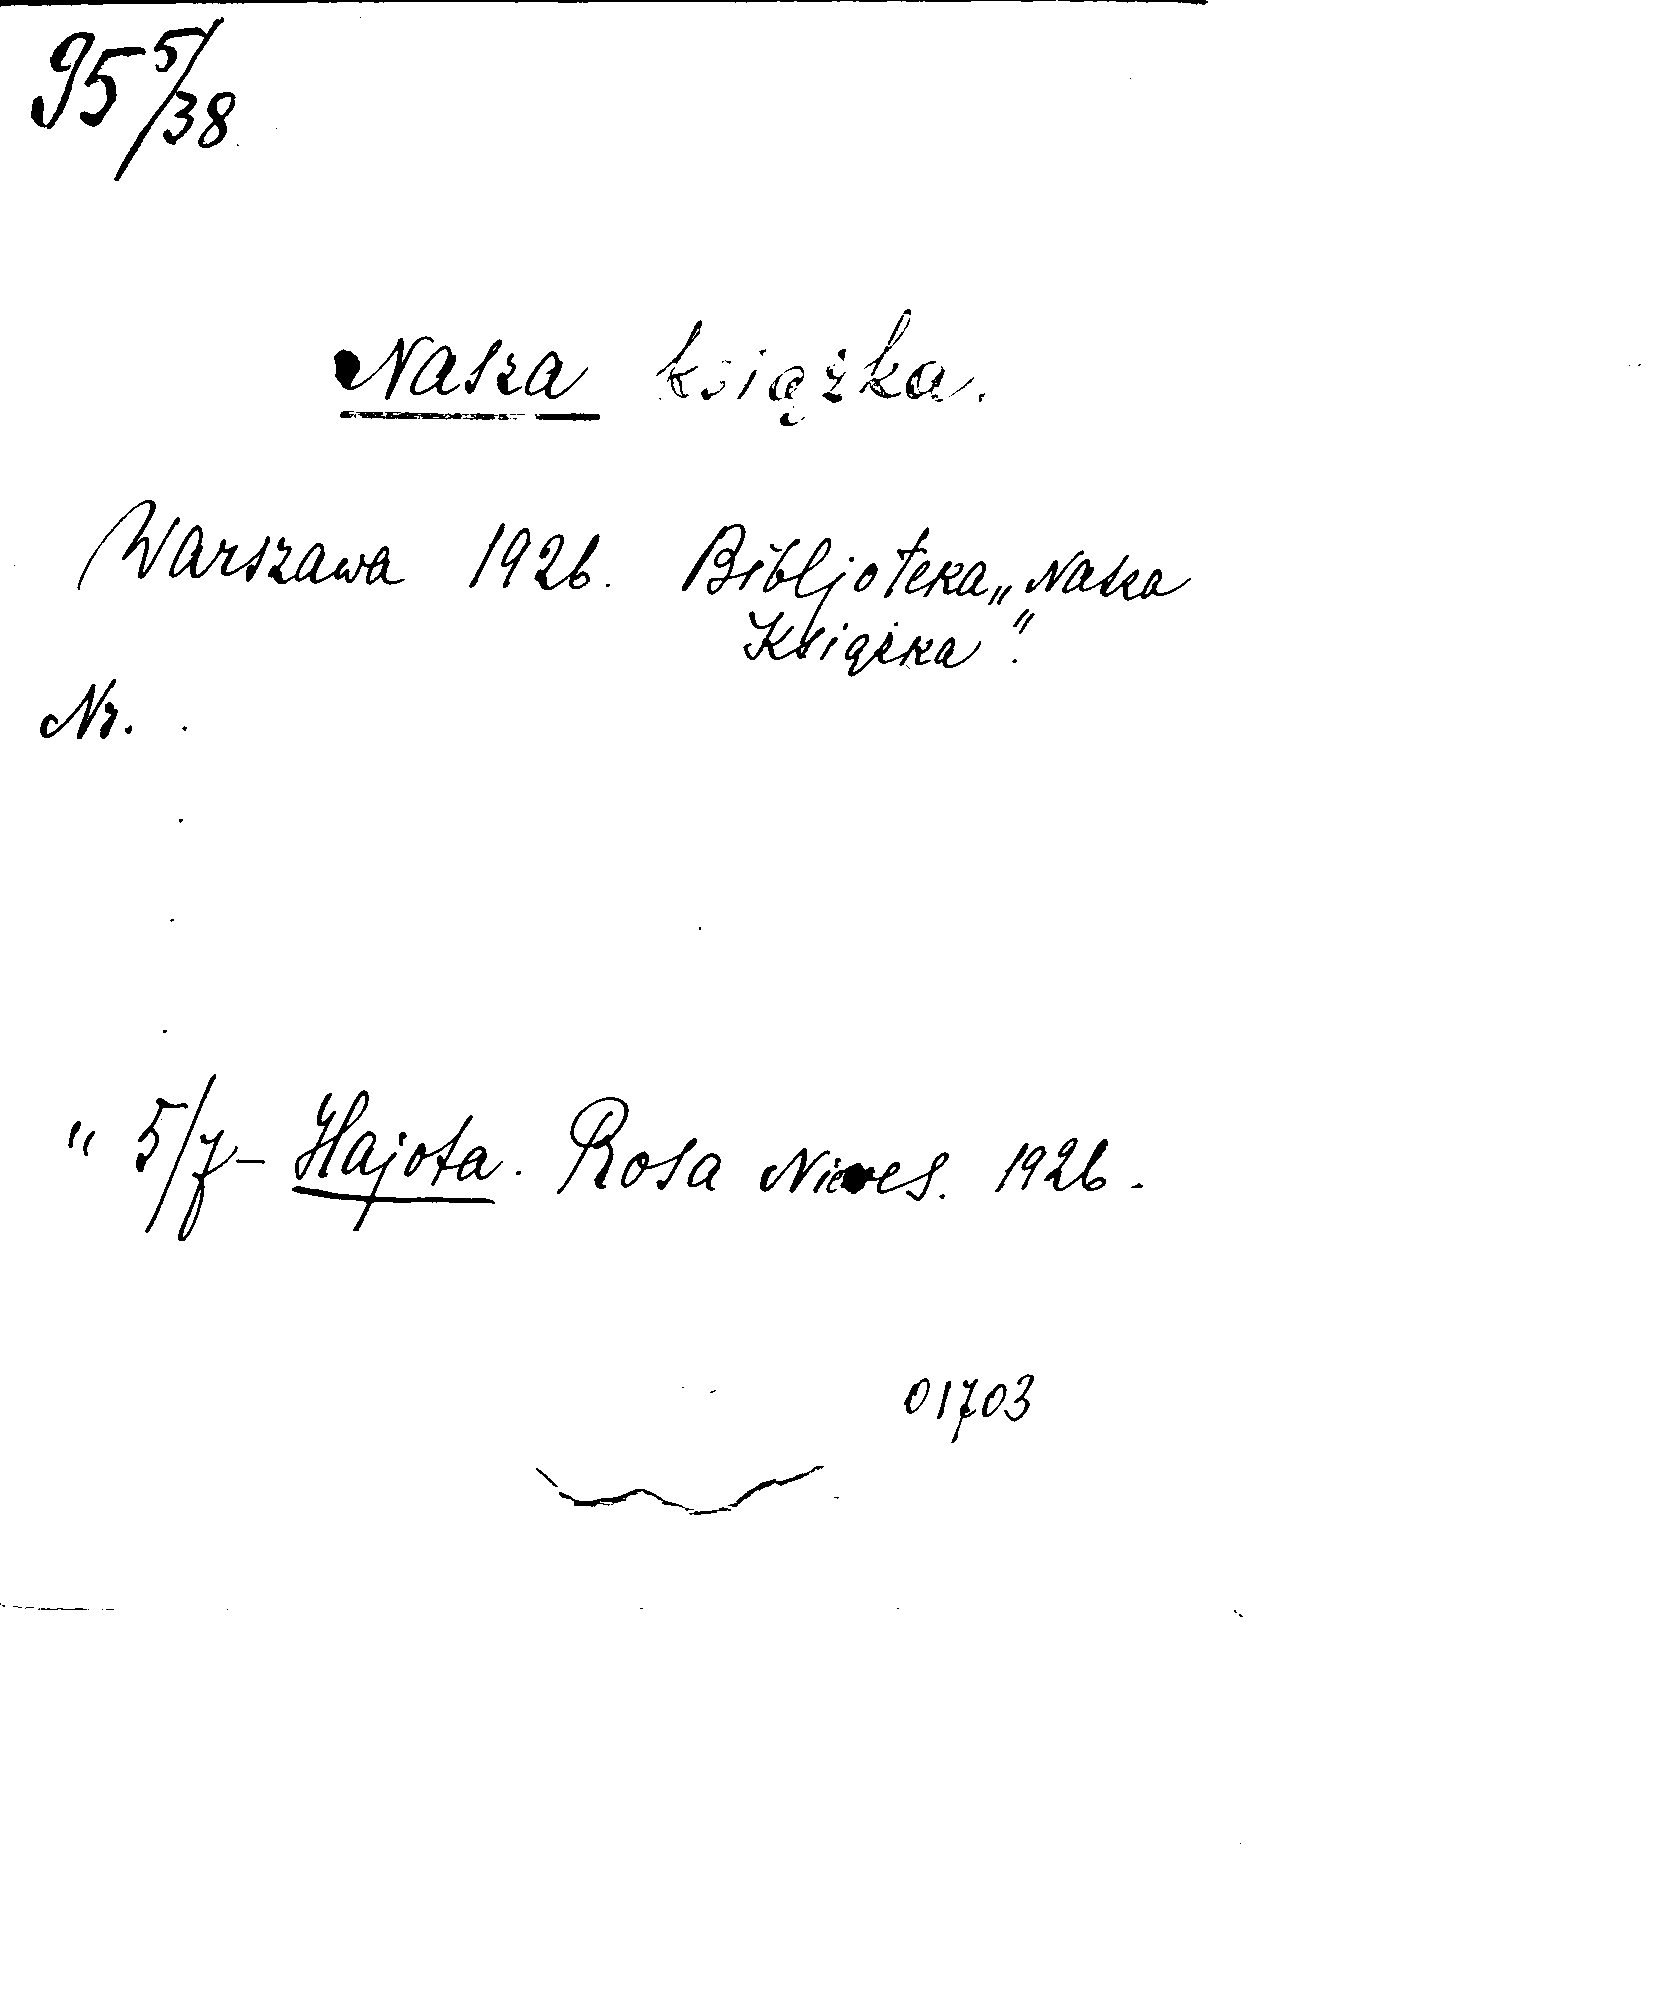 95 5/38
Nasza książka.
Warszawa 1926. Bibljoteka „Nasza
Książka”.
Nr.
" 5/7 - Hajota. Rosa Nieves. 1926.
01703